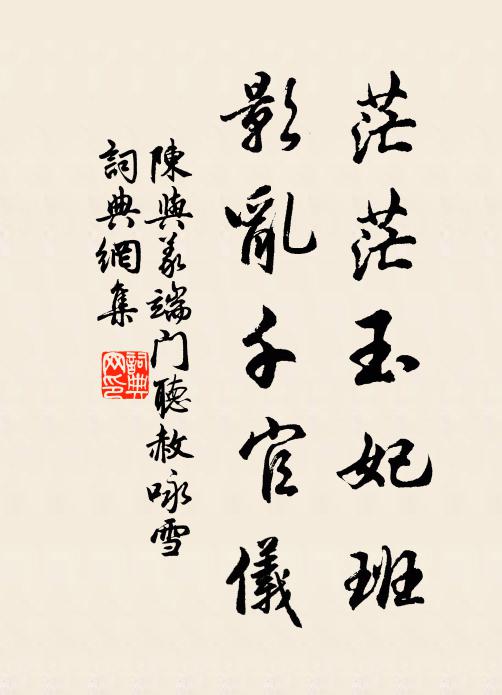 茫茫玉妃班
影亂千官儀
陳與義端門聽赦咏雪
詞典網集
詞典網印